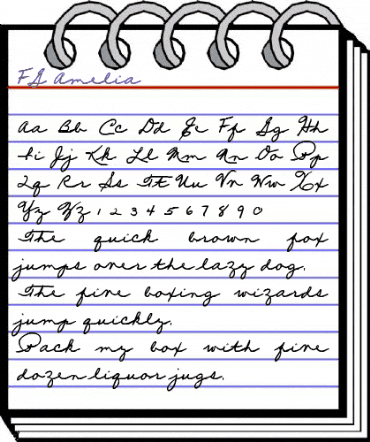 FG Amelia
Aa Bb Cc Dd Ee Ff Gg Hh
Ii Jj Kk Ll Mm Nn Oo Pp
Qq Rr Ss Tt Uu Vv Ww Xx
Yy Zz 1 2 3 4 5 6 7 8 9 0
The quick brown fox
jumps over the lazy dog.
The five boxing wizards
jump quickly.
Pack my box with five
dozen liquor jugs.